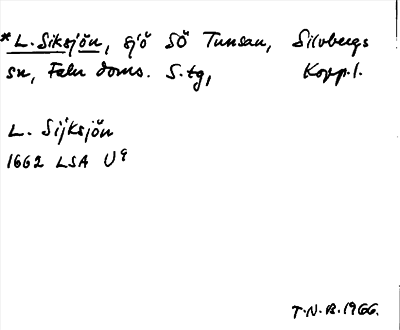 *L. Siksjön, sjö SÖ Tunsan, Silvbergs
sn, Falu doms. S. tg, Kopp. l.
L. Sijksjön
1662 LSA U9
T.N.B. 1966.